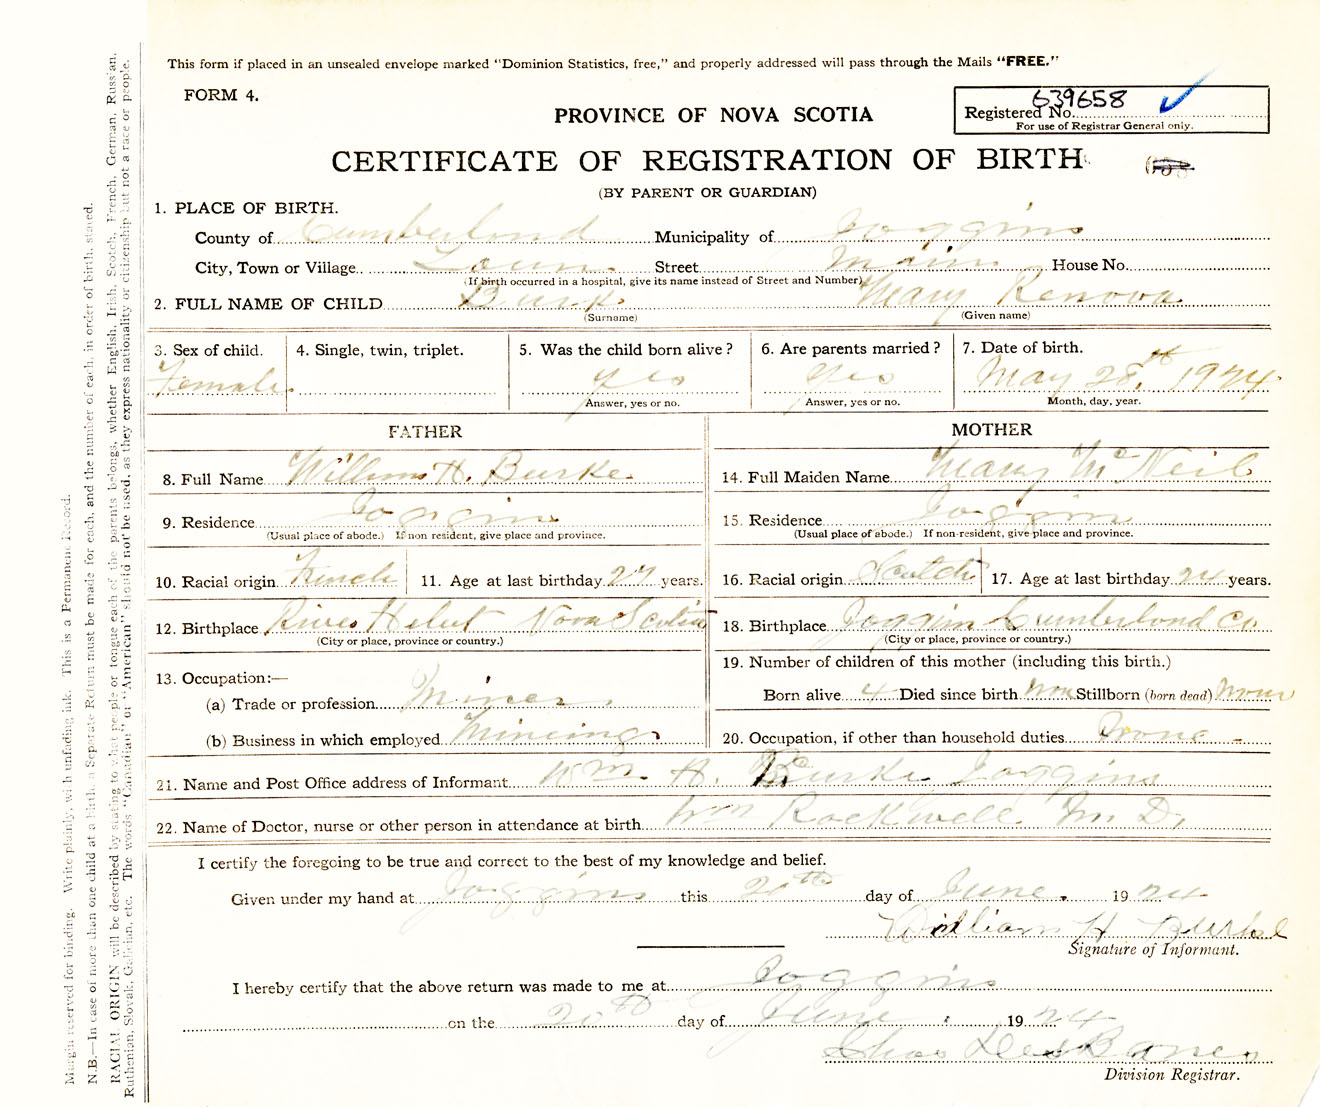 This form if placed in an unsealed envelope marked "Dominion Statistics, free," and properly addressed will pass through the Mails "FREE."
FORM 4.
639658
Registered No.
For use of Registrar General only.
PROVINCE OF NOVA SCOTIA
CERTIFICATE OF REGISTRATION OF BIRTH
(BY PARENT OR GUARDIAN)
1. PLACE OF BIRTH.
County of Cumberland Municipality of Joggins
City, Town or Village Town. Street Main House No.
(If birth occurred in a hospital, give its name instead of Street and Number)
2. FULL NAME OF CHILD Burk Mary Renova
(Surname) (Given name)
3. Sex of child. 4. Single, twin, triplet. 5. Was the child born alive? 6. Are parents married? 7. Date of birth.
Female. yes yes May 28th, 1924
Answer, yes or no. Answer, yes or no. Month, day, year.
FATHER MOTHER
8. Full Name William H. Burke 14. Full Maiden Name Mary McNeil
9. Residence Joggins 15. Residence Joggins
(Usual place of abode.) If non resident, give place and province. (Usual place of abode.) If non-resident, give place and province.
10. Racial origin French 11. Age at last birthday 27 years. 16. Racial origin Scutch 17. Age at last birthday 24 years.
12. Birthplace River Hebut Nova Scotia 18. Birthplace Joggin Cumberland Co.
(City or place, province or country.) (City or place, province or country.)
13. Occupation:— 19. Number of children of this mother (including this birth.)
(a) Trade or profession Miner. Born alive 4 Died since birth Non Stillborn (born dead) None
(b) Business in which employed Mineing 20. Occupation, if other than household duties None -
21. Name and Post Office address of Informant Wm. H. Burke Joggins
22. Name of Doctor, nurse or other person in attendance at birth Wm Rockwell M. D.
I certify the foregoing to be true and correct to the best of my knowledge and belief.
Given under my hand at Joggins this 20th day of June, 1924
William H Burke
Signature of Informant.
I hereby certify that the above return was made to me at Joggins
on the 20th day of June 1924
Chas DesBarres
Division Registrar.
Margin reserved for binding. Write plainly, with unfading ink. This is a Permanent Record.
N.B.—In case of more than one child at a birth, a Seperate Return must be made for each, and the number of each, in order of birth, stated.
RACIAL ORIGIN will be described by stating to what people or tongue each of the parents belongs, whether English, Irish, Scotch, French, German, Russian,
Ruthenian, Slovak, Galician, etc. The words "Canadian" or "American" should not be used, as they express nationality or citizenship but not a race or people.